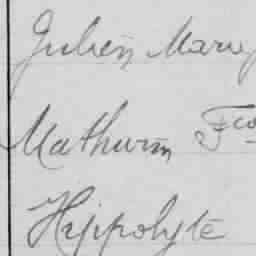 Julien Marie
Mathurin Fco
Hippolyte